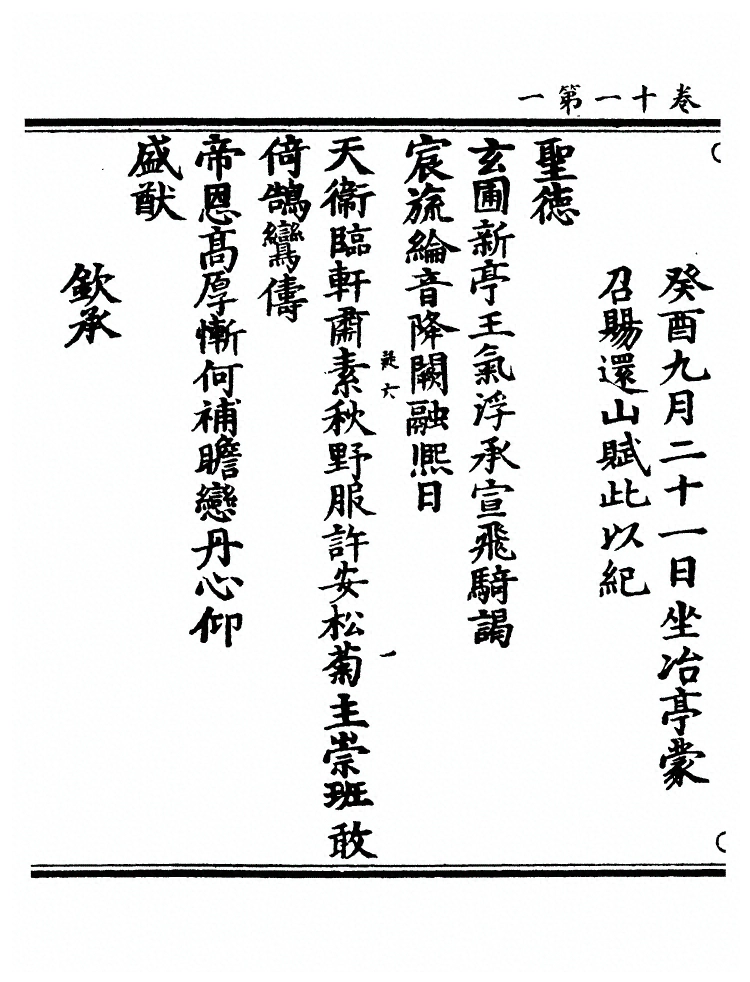 卷十一第一
癸酉九月二十一日坐冶亭蒙
召賜還山賦此以紀
聖德
玄圃新亭王氣浮承宣飛騎謁
宸旒綸音降闕融熙日
疑六
天衛臨軒肅素秋野服許安松菊主崇班敢
一
倚鵠鸞儔
帝恩高厚慚何補瞻戀丹心仰
盛猷
欽承